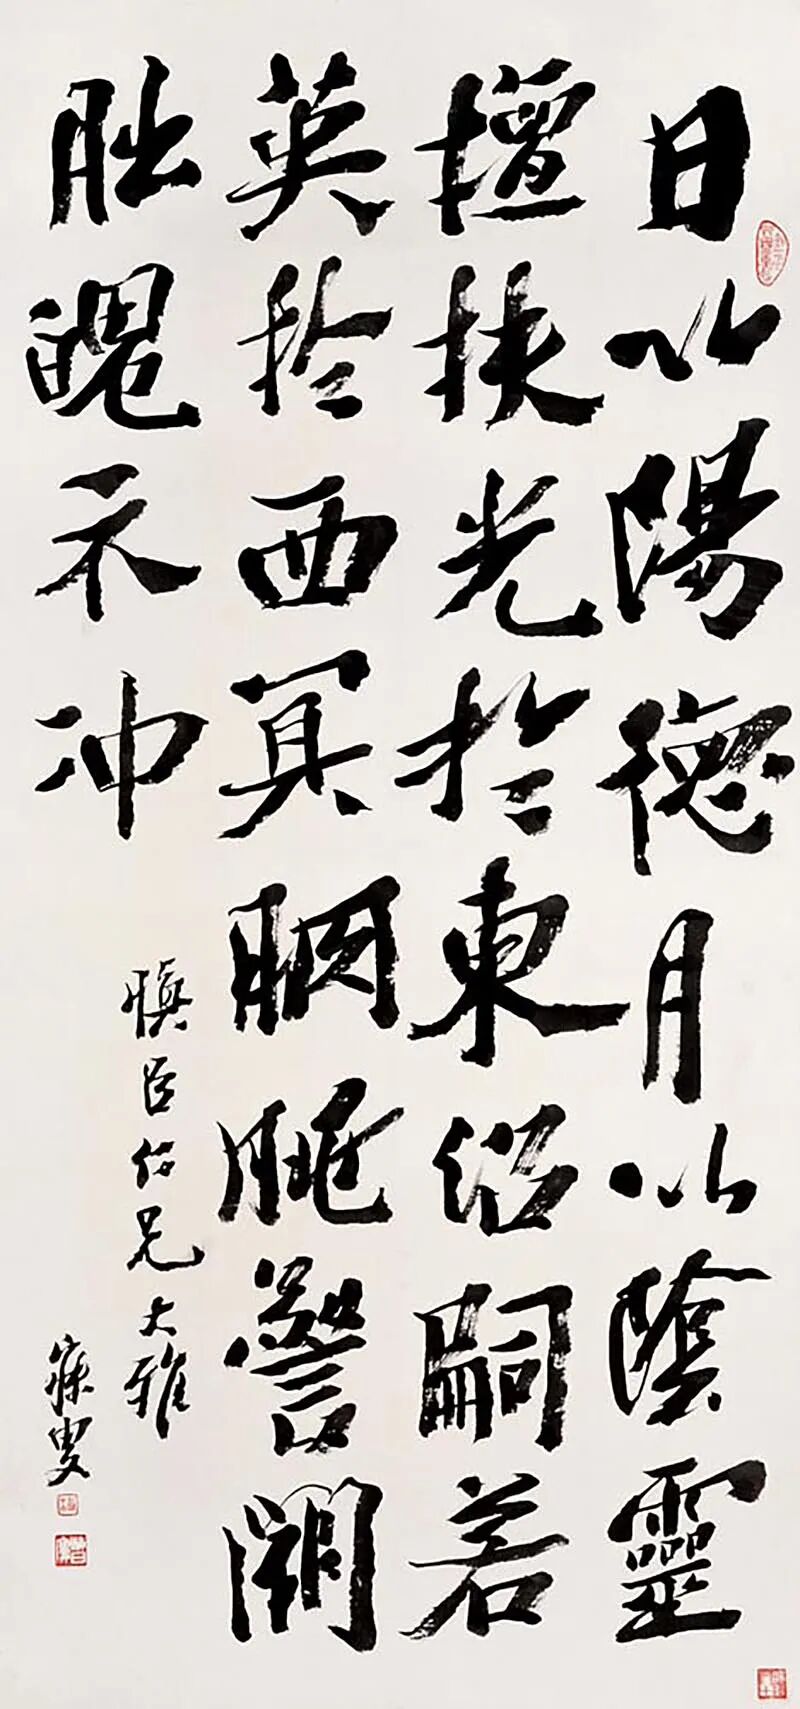 日以陽德月以陰靈
擅扶光於東沼嗣若
英於西冥朒脁警闕
朏魄示冲
慎臣仁兄大雅
寐叟